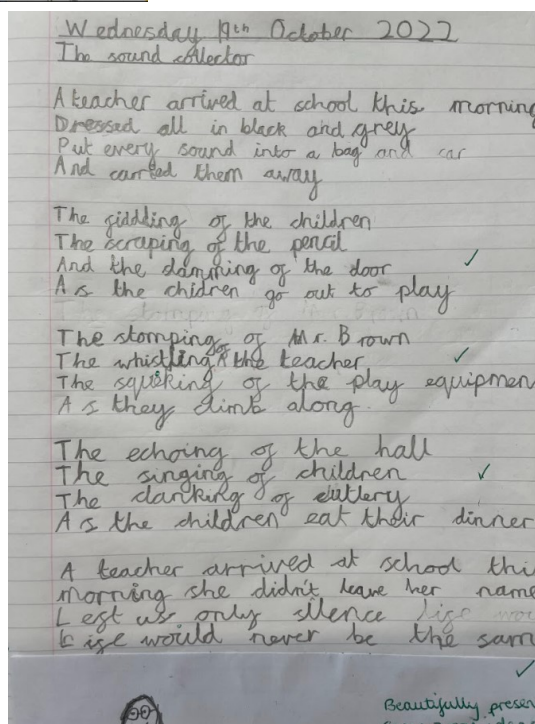 Wednesday 19th October 2022
The sound collector
A teacher arrived at school this morning
Dressed all in black and grey
Put every sound into a bag and car
And carried them away
The giddling of the children
The scraping of the pencil
And the slamming of the door
As the chidren go out to play
The stomping of Mr. Brown
The stomping of Mr. Brown
The whistling of the teacher
The squeking of the play equipmen
As they climb along.
The echoing of the hall
The singing of children
The clanking of cutlery
As the children eat their dinner
A teacher arrived at school thi
morning she didn't leave her name
Left us only silence life wou
Life would never be the sam
Beautifully presen